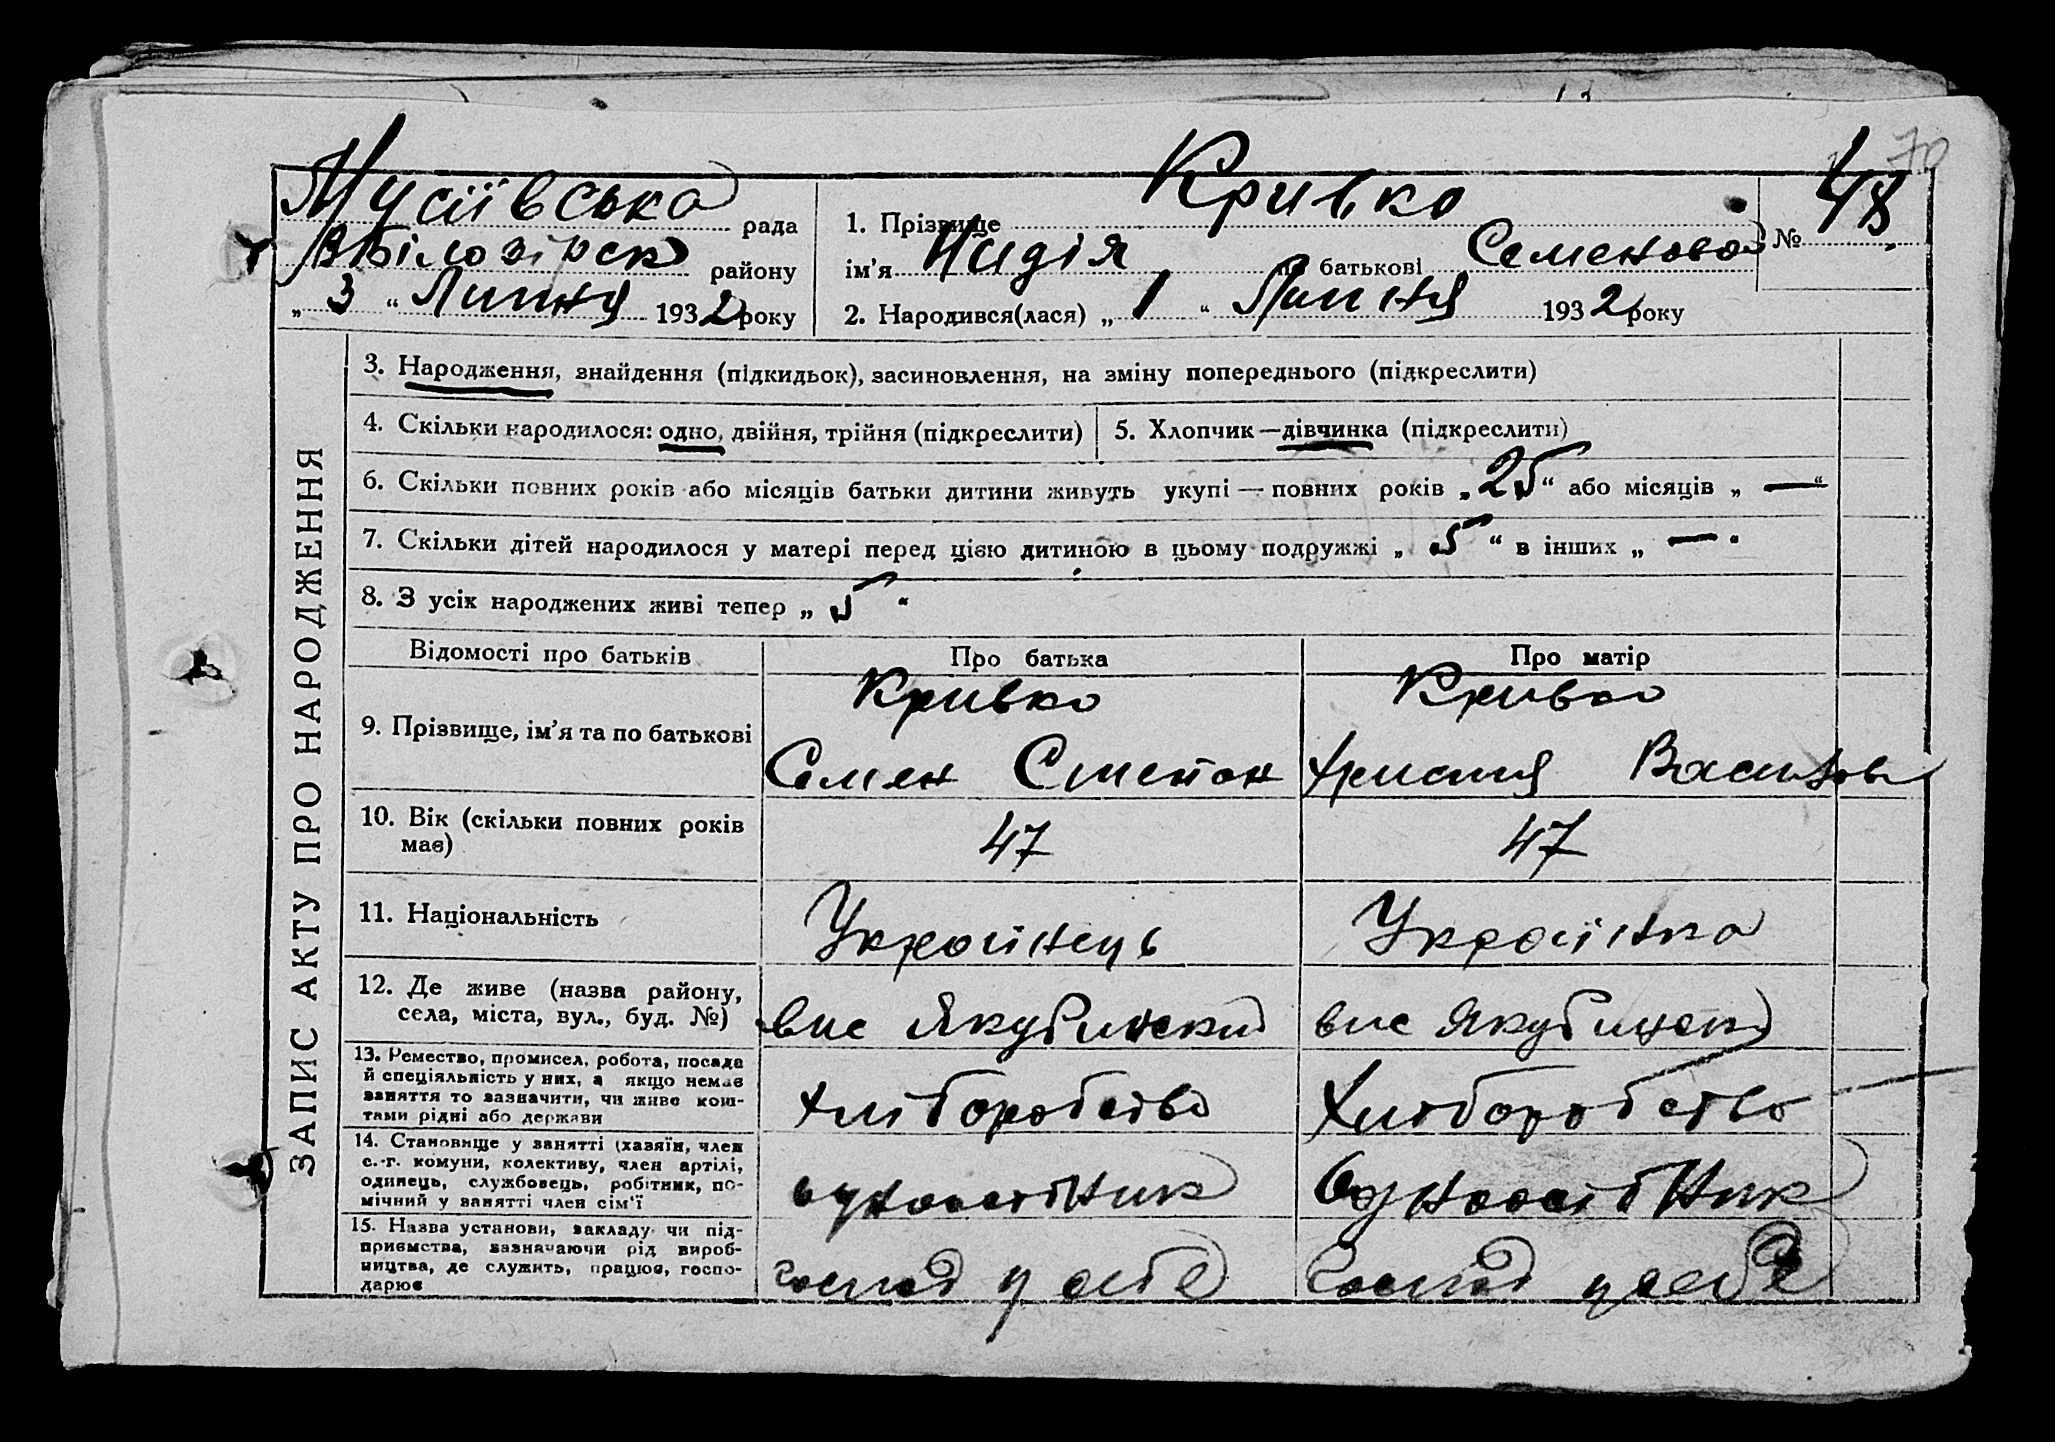 70
Мусіївська рада
В Білозірск району
„ 3 “ Липня 1932 року
1. Прізвище Кривко
ім'я Надія по батькові Семенова
№ 48
2. Народився(лася) „ 1 “ Липня 1932 року
ЗАПИС АКТУ ПРО НАРОДЖЕННЯ
3. Народження, знайдення (підкидьок), засиновлення, на зміну попереднього (підкреслити)
4. Скільки народилося: одно, двійня, трійня (підкреслити)
5. Хлопчик—дівчинка (підкреслити)
6. Скільки повних років або місяців батьки дитини живуть укупі — повних років „ 25 “ або місяців „ — “
7. Скільки дітей народилося у матері перед цією дитиною в цьому подружжі „ 5 “ в інших „ — “
8. З усіх народжених живі тепер „ 5 “
Відомості про батьків
Про батька
Про матір
9. Прізвище, ім'я та по батькові
Кривко
Семен Степан
Кривко
Христия Васильов
10. Вік (скільки повних років
має)
47
47
11. Національність
Українець
Українка
12. Де живе (назва району,
села, міста, вул., буд. №)
вис Якубинский
вис Якубинск
13. Ремество, промисел, робота, посада
й спеціяльність у них, а якщо немає
заняття то зазначити, чи живе кош-
тами рідні або держави
хліборобство
Хліборобство
14. Становище у занятті (хазяїн, член
с.-г. комуни, колективу, член артілі,
одинець, службовець, робітник, по-
мічний у занятті член сім'ї
одноосібник
Одноосібник
15. Назва установи, закладу чи під-
приємства, зазначаючи рід вироб-
ництва, де служить, працює, госпо-
дарює
Господ у себе
Господ у себе